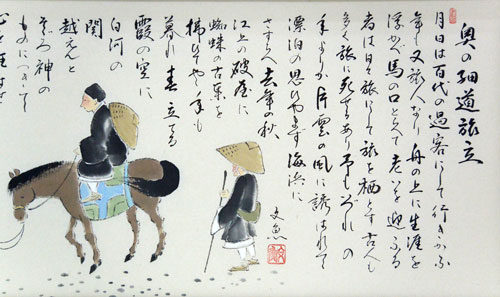 奥の細道旅立
月日は百代の過客にして行きかふ
年も又旅人なり舟の上に生涯を
浮かべ馬の口とらえて老いを迎ふる
者は日々旅にして旅を栖とす古人も
多く旅に死せるあり予もいづれの
年よりか片雲の風に誘はれて
漂泊の思ひやまず海浜に
さすらへ去年の秋
江上の破屋に
蜘蛛の古巣を
掃ひてやゝ年も
暮れ春立てる
霞の空に
白河の
関
越えんと
そぞろ神の
ものにつきて